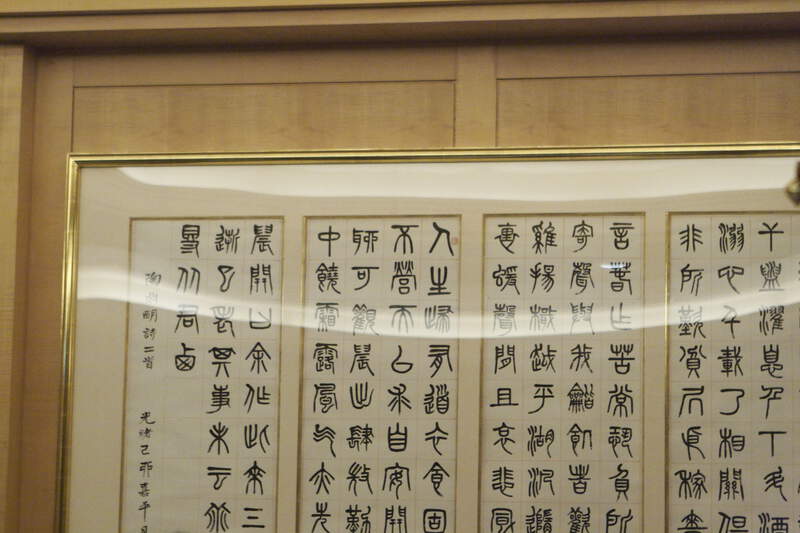 干盥濯息檐下斗酒
溺心千載乃相關但
非所歎貧居依稼穡
言春作苦常恐負所
寄聲與我諧飢者歡
雞揚楫越平湖汎隨
裏猨聲閒且哀悲風
人生歸有道衣食固
不營而以求自安開
聊可觀晨出肆微勤
中饒霜露風氣亦先
晨開曰余作此來三
逝已老其事未云乖
得从君棲
陶淵明詩二首 光緒己卯嘉平月